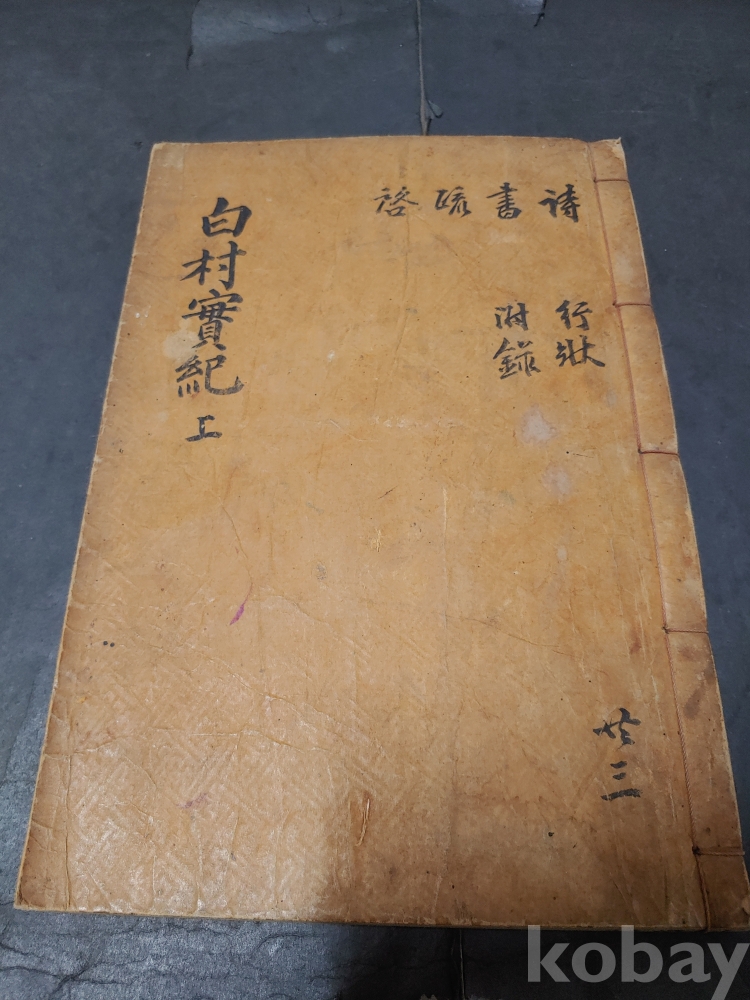 詩 行狀
書 附錄
疏
啓
白村實紀 上
共三
kobay